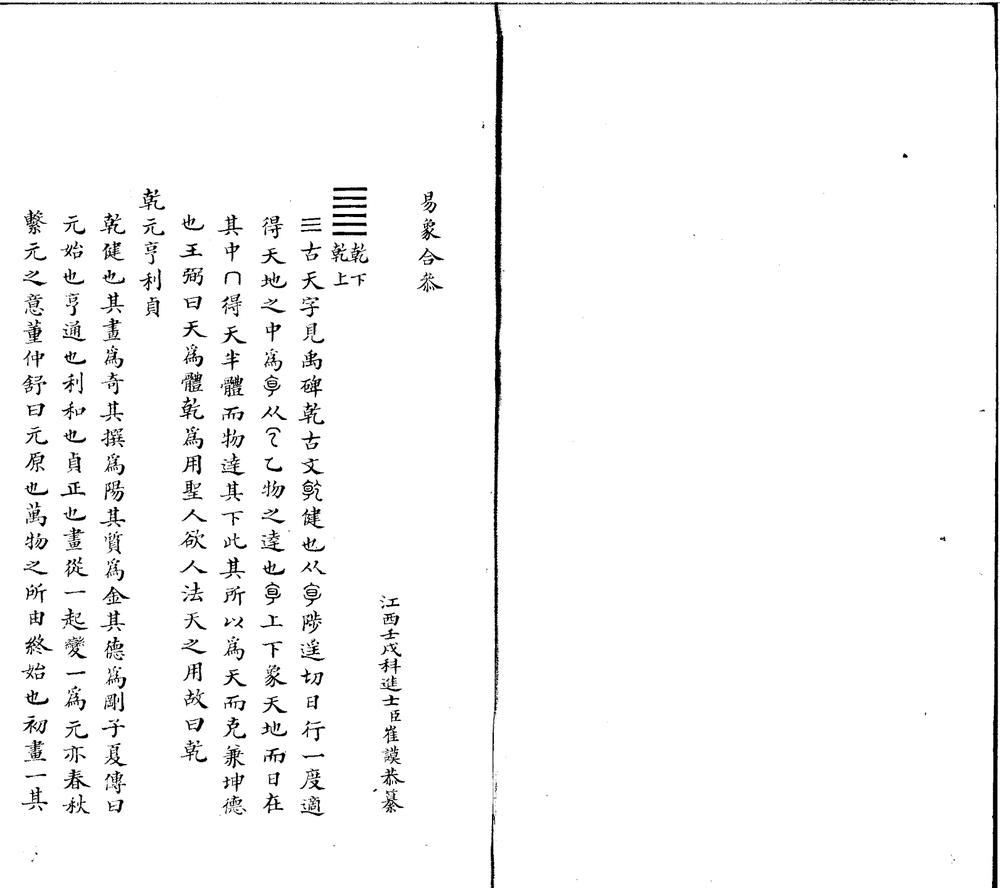 易象合叅
江西壬戌科進士臣崔謨恭纂
䷀乾下
乾上
三古天字見禹碑乾古文健也从陟遥切日行一度適
得天地之中為从乙物之逹也上下象天地而日在
其中∩得天半體而物逹其下此其所以為天而克兼坤德
也王弼曰天為體乾為用聖人欲人法天之用故曰乾
乾元亨利貞
乾健也其畫為奇其撰為陽其質為金其德為剛子夏傳曰
元始也亨通也利和也貞正也畫從一起變一為元亦春秋
繫元之意董仲舒曰元原也萬物之所由終始也初畫一其